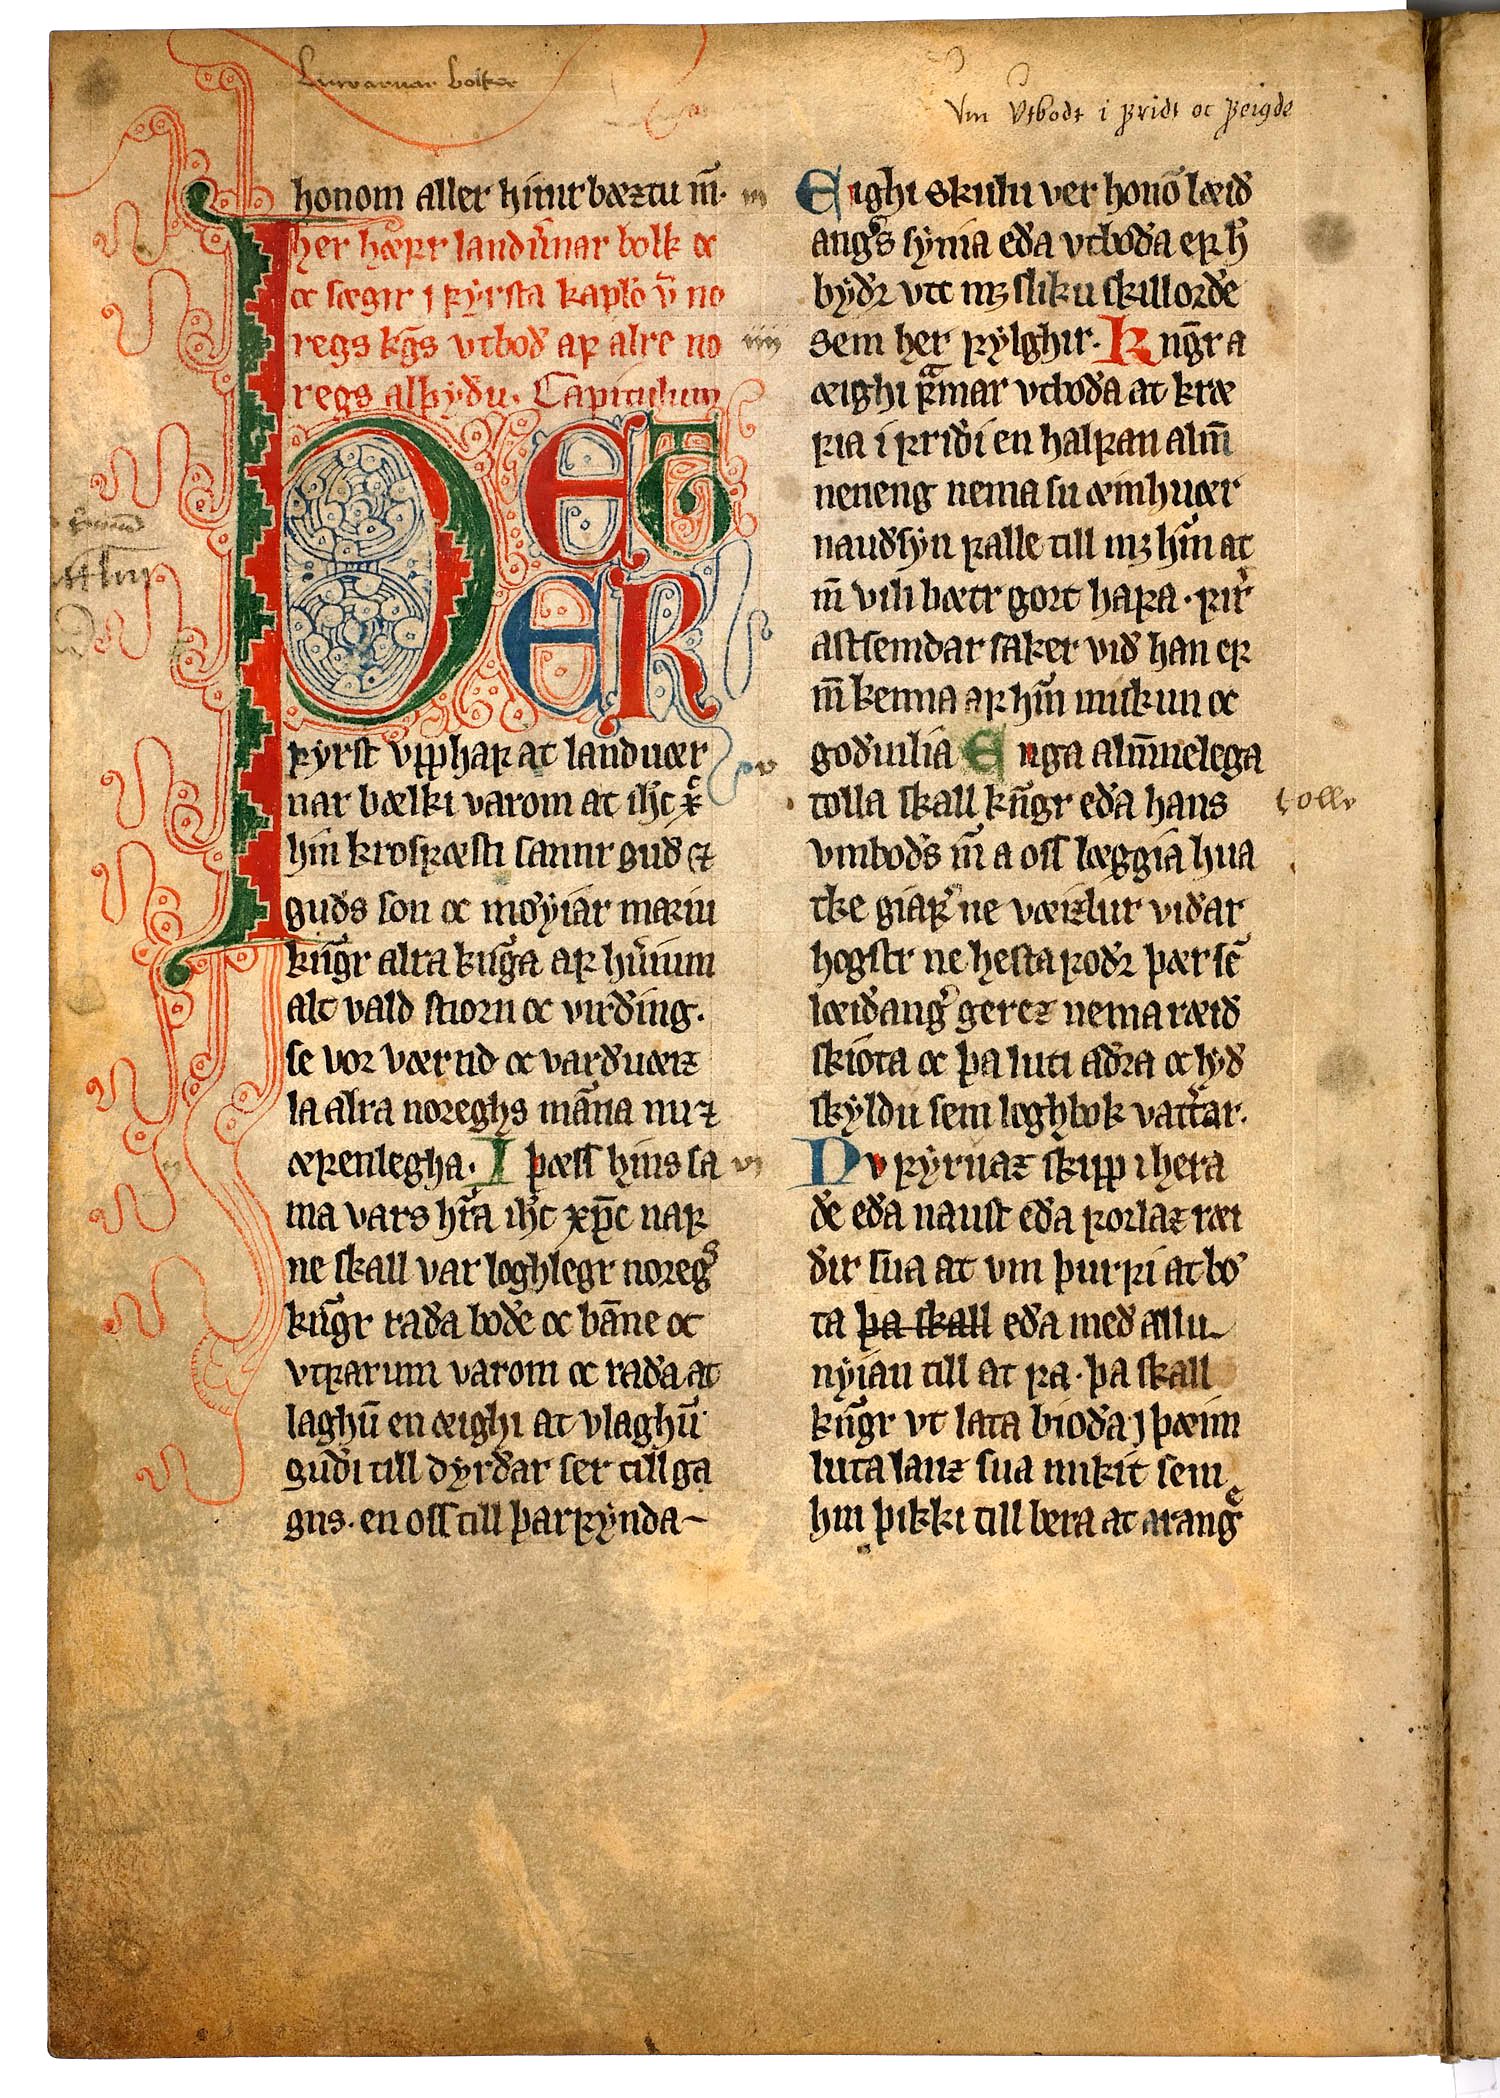 Lanvarnar bolker
Vm Vtbodt i ꝼridt oc ꝼeigde
honom aller hinir bæztu m̄.
her hæꝼr landv̄nar bolk oc
oc sægir j ꝼyrsta kapło v̄ no
regs kḡs vtboð aꝼ alre no
regs alþyðu. Capitulum
ÞET
ER
ꝼyrst vpphaꝼ at landuær
nar bælki varom at ih̄c xͬ
hin krosꝼæsti sannr guð ꝛ
guðs son oc mͦyiar mariu
kn̄gr alra kn̄ga aꝼ hv̄ium
alt vald stiorn oc virðing.
se vor værnd oc varðuæiz
la alra noreghs man̄a nu ꝛ
æꝼenlegha. I þæss hins sa
ma vars hr̄a ih̄c xp̄c naꝼ
ne skall var loghlegr noregˢ
kn̄gr raða boðe oc ban̄e oc
vtꝼarum varom oc raða at
laghū en æighi at vlaghū
guði till dyrðar ser till ga
gns. en oss till þarꝼynda
iii
Eighi skulu ver honō læið
angˢs synia eða vtboða eꝼ h̄
byðr vtt mꝫ sliku skillorðe
iiii
sem her ꝼylghir. Kn̄gr a
æighi ꝼᵃmar vtboða at kræ
ꝼia i ꝼriði en halꝼan alm̄
neneng nema su æinhuær
nauðsyn ꝼalle till mꝫ hm̄ at
m̄ vili bætr gort haꝼa. ꝼir̄
astsemdar saker við han eꝼ
m̄ kenna aꝼ hm̄ miskun oc
v
goðuilia Enga alm̄nelega
tolla skall kn̄gr eða hans
tolla
vmboðs m̄ a oss læggia hua
tke giaꝼͬ ne væizlur viðar
hogstr ne hestaꝼoðr þær sē
læiðangͬ gerez nema ræið
skiota oc þa luti aðra oc lyð
skyldu sem loghbok vattͬar.
vi
Nv ꝼyrnaz skipp i hera
ðe eða naust eða ꝼorlaz ræi
ðir sua at vm þurꝼi at bͦ
ta þa skall eða með allu
nyian till at ꝼa. þa skall
kn̄gr vt lata bioða j þæim
luta lanz sua mikit sem
hm þikki till bera at arangͤ